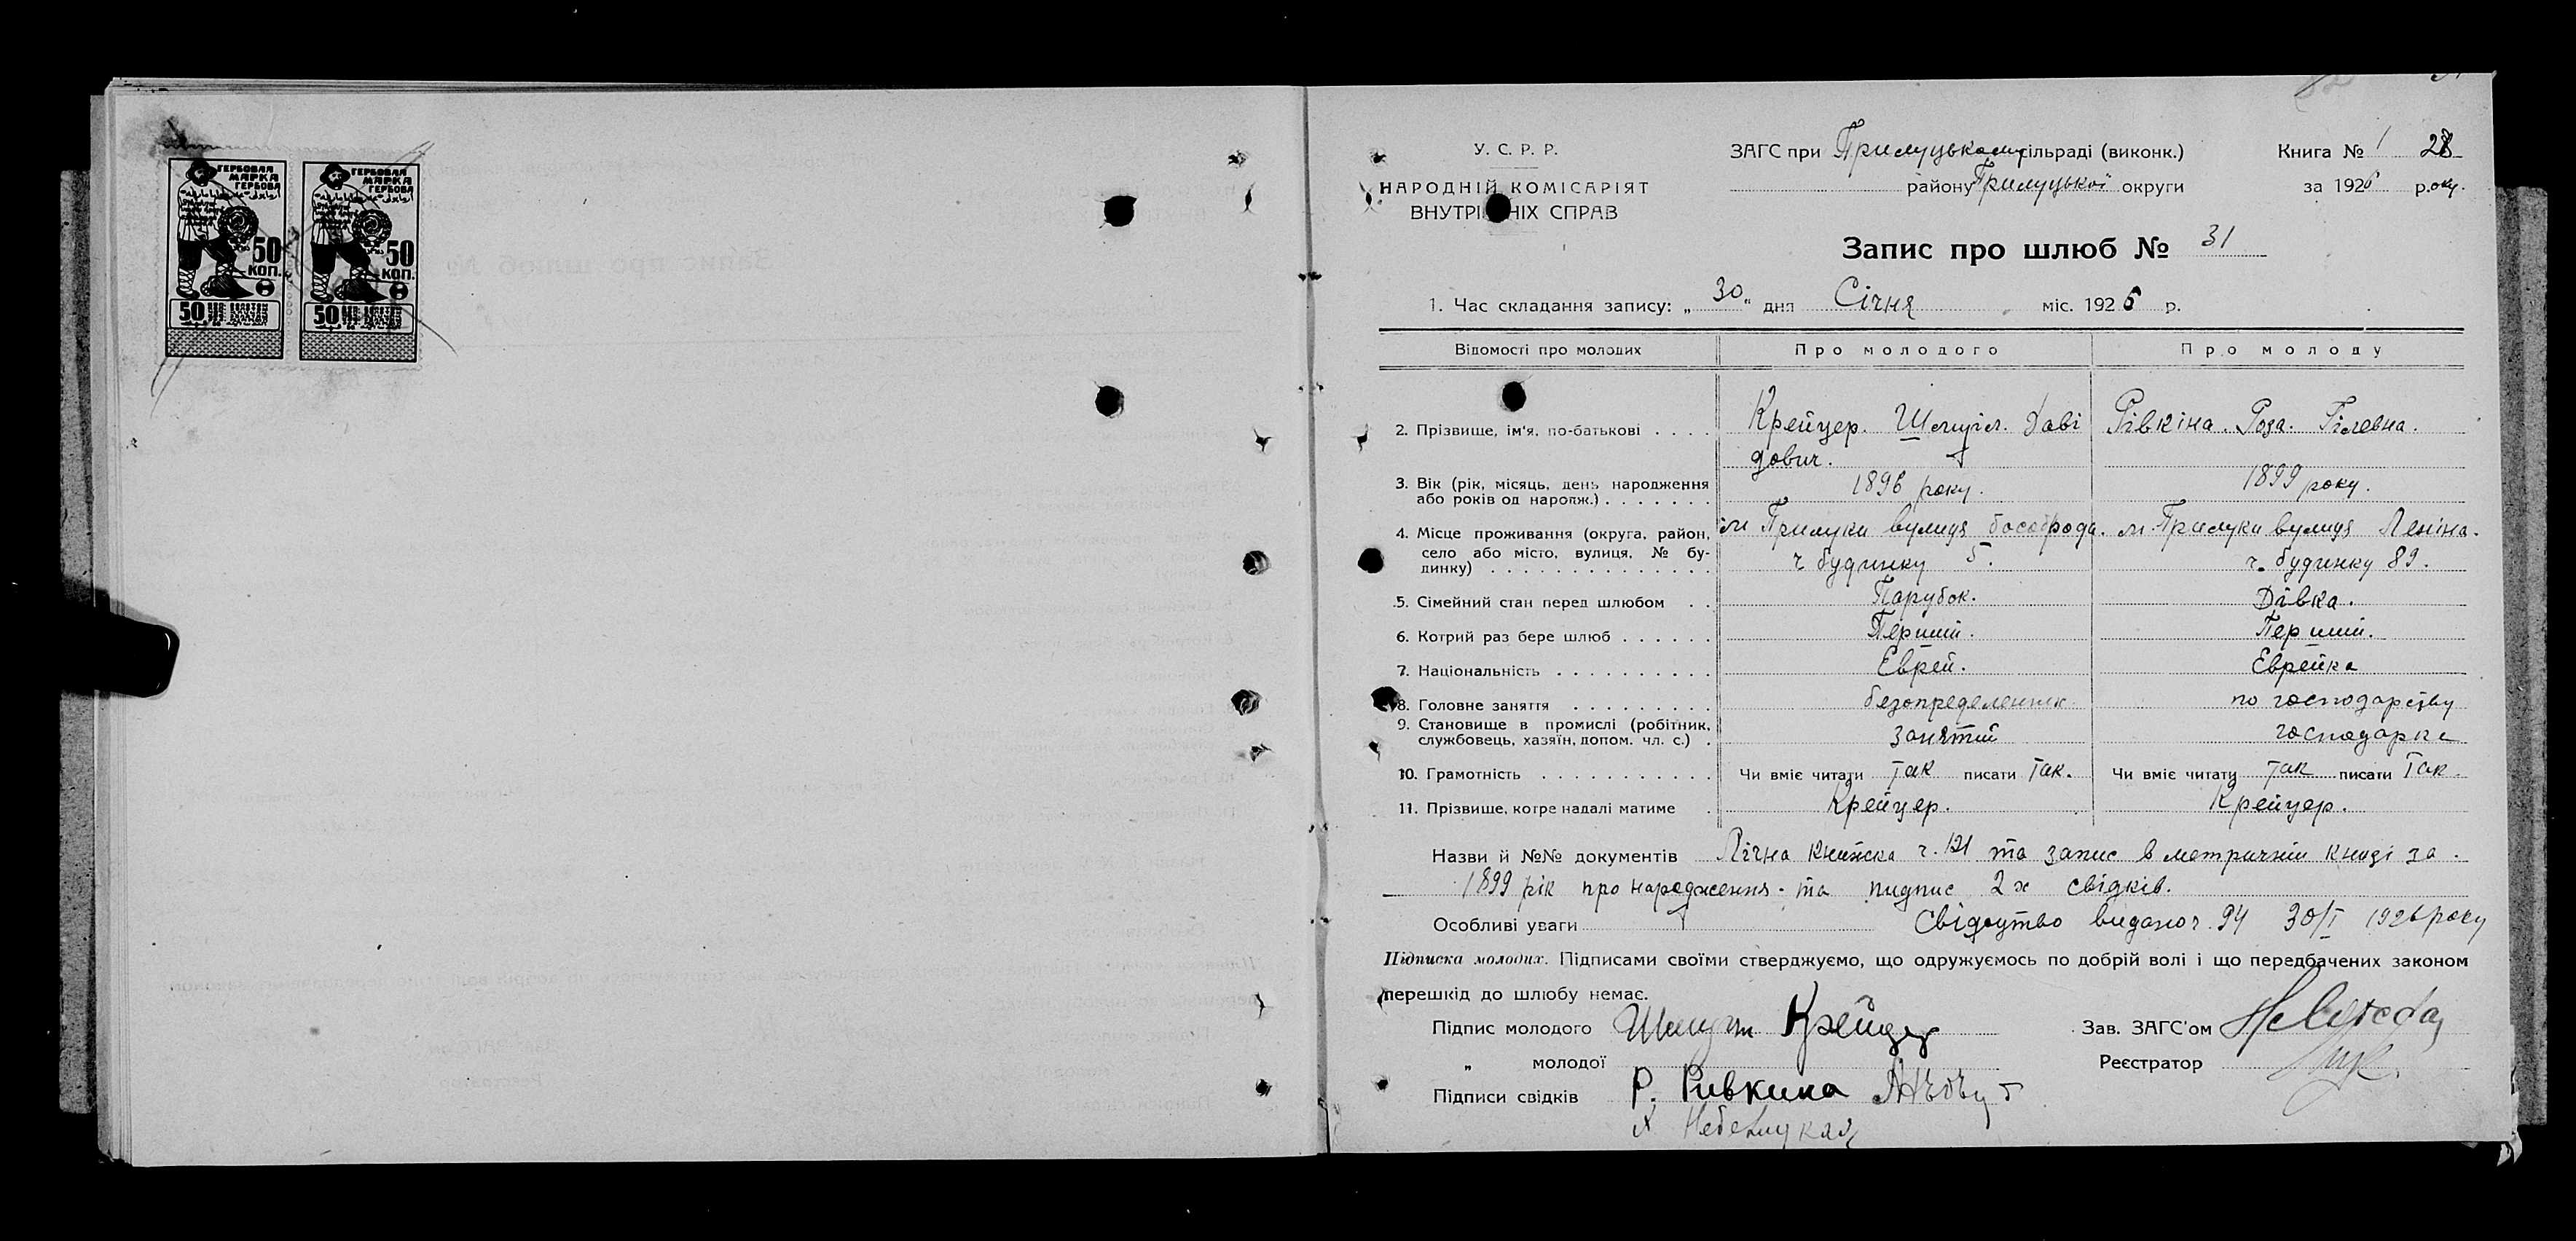 ГЕРБОВАЯ
МАРКА
ГЕРБОВА
50
КОП.
50
ГЕРБОВАЯ
МАРКА
ГЕРБОВА
50
КОП.
50
У. С. Р. Р.
НАРОДНІЙ КОМІСАРІЯТ
ВНУТРІШНІХ СПРАВ
ЗАГС при Прилуцькому сільраді (виконк.)
району Прилуцької округи
Книга № 1 28
за 1926 року.
Запис про шлюб № 31
1. Час складання запису: „30" дня Січня міс. 1926 р.
Відомості про молодих Про молодого Про молоду
2. Прізвище, ім'я, по-батькові . . . . Крейцер. Шмуіл. Даві Рівкіна. Роза. Гілевна.
дович.
3. Вік (рік, місяць, день народження 1896 року. 1899 року.
або років од народж.) . . . . . . .
4. Місце проживання (округа, район, м Прилуки вулиця м. Прилуки вулиця Леніна.
село або місто, вулиця, № бу- ч будинку 5. ч. будинку 89.
динку) . . . . . . . . . . . . . .
5. Сімейний стан перед шлюбом . . Парубок. Дівка.
6. Котрий раз бере шлюб . . . . . . Перший. Перший.
7. Національність . . . . . . . . . . Еврей. Еврейка
8. Головне заняття . . . . . . . . . безопределенних по господарству
9. Становище в промислі (робітник, занятий господарка
службовець, хазяїн, допом. чл. с.) .
10. Грамотність . . . . . . . . . . . Чи вміє читати так писати так. Чи вміє читати так писати так.
11. Прізвище, котре надалі матиме . Крейцер. Крейцер.
Назви й №№ документів Лічна книжка ч. 121 та запис в метричній книзі за
1899 рік про народження. та пидпис 2х свідків.
Особливі уваги Свідоцтво видано ч. 94 30/I 1926 року
Підписка молодих. Підписами своїми стверджуємо, що одружуємось по добрій волі і що передбачених законом
перешкід до шлюбу немає.
Підпис молодого Шмуил Крейцер Зав. ЗАГС'ом
„ молодої Реєстратор
Підписи свідків Р. Ривкина